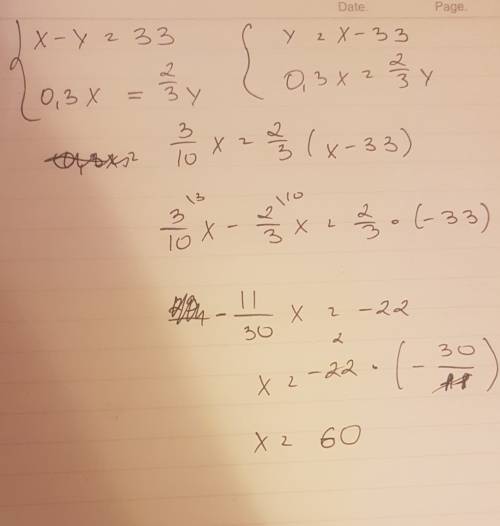 Date. Page.
x - y = 33
0,3x = 2/3 y
y = x - 33
0,3x = 2/3 y
3/10 x = 2/3 (x - 33)
3\3/10 x - 2\10/3 x = 2/3 • (-33)
- 11/30 x = -22
2
x = -22 • (- 30/11)
x = 60